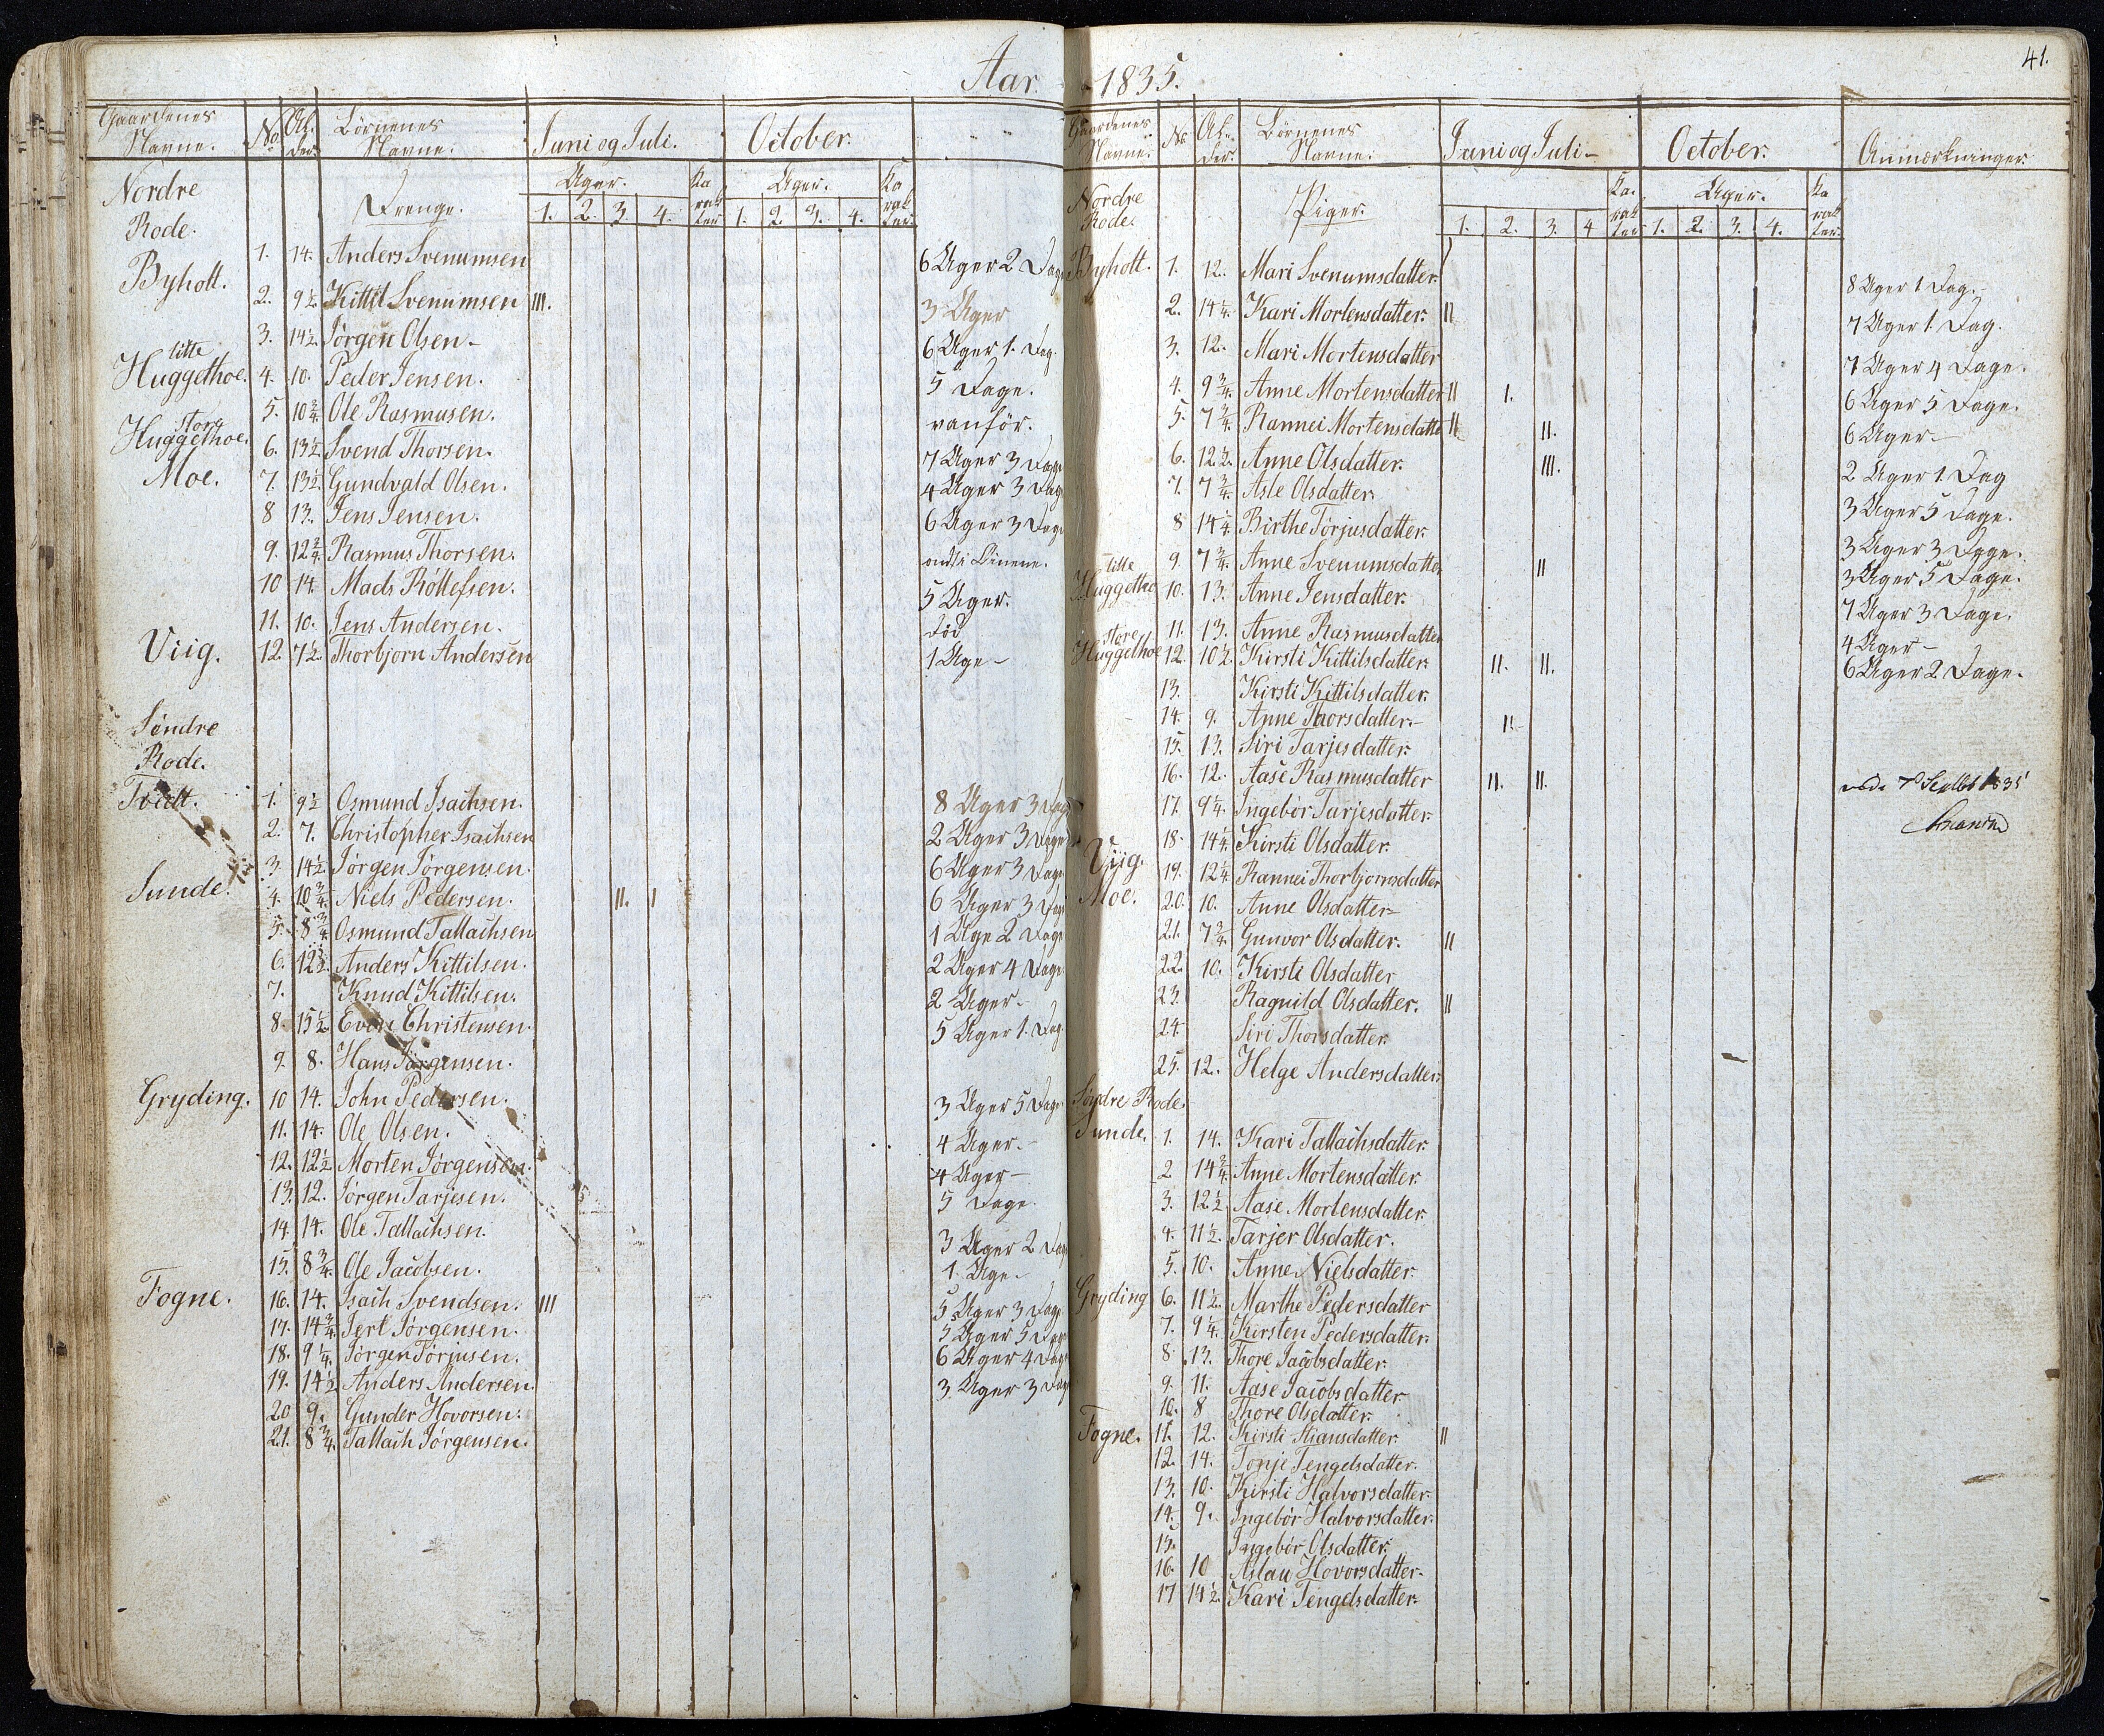 Aar 1835.
41.
Gaardenes Navne. No. Alder. Börnenes Navne. Juni og Juli. October.
Nordre Rode. Drenge. Uger. Karakter Uger. Karakter
1. 2. 3. 4. 1. 2. 3. 4.
Byholt. 1. 14. Anders Svenumsen 6 Uger 2 Dage
2. 9½ Kittil Svenumsen III. 3 Uger
3. 14½ Jørgen Olsen 6 Uger 1. Dag.
litte Huggethoe. 4. 10. Peder Jensen. 5 Dage.
5. 10¾ Ole Rasmusen. vanför.
store Huggethoe. 6. 13½ Svend Thorsen. 7 Uger 3 Dage
Moe. 7. 13½ Gundvald Olsen. 4 Uger 3 Dage
8 13. Jens Jensen. 6 Uger 3 Dage
9. 12¾ Rasmus Thorsen.
10 14. Mads Röllefsen. 5 Uger.
11. 10. Jens Andersen. död
Viig. 12. 7½ Thorbjorn Andersen 1 Uge
Søndre Rode.
Tvedt. 1. 9½ Osmund Isachsen. 8 Uger 3 Dage
2. 7. Christopher Isachsen 2 Uger 3 Dage
3. 14½ Jørgen Jørgensen. 6 Uger 3 Dage
Sunde. 4. 10¾ Niels Pedersen. II. I 6 Uger 3 Dage
5. 8¾ Osmund Tallachsen 1 Uge 2 Dage
6. 12½ Anders Kittilsen. 2 Uger 4 Dage
7. Knud Kittilsen. 2 Uger
8. 15½ Even Christensen. 5 Uger 1. Dag
9. 8. Hans Jørgensen.
Gryding. 10 14. John Pedersen. 3 Uger 5 Dage
11. 14. Ole Olsen. 4 Uger.
12. 12½ Morten Jørgensen. 4 Uger
13. 12. Jørgen Tarjesen. 5 Dage
14. 14. Ole Tallachsen. 3 Uger 2 Dage
15. 8¾ Ole Jacobsen. 1. Uge
Fogne. 16. 14. Isach Svendsen. III 5 Uger 3 Dage
17. 14¾ Jert Jørgensen. 5 Uger 5 Dage
18. 9¼ Jørgen Torjusen. 6 Uger 4 Dage
19. 14½ Anders Andersen. 3. Uger 3 Dage
20 9. Gunder Hovorsen.
21. 8¾ Tallach Jørgensen.
Gaardenes Navne. No Alder. Börnenes Navne. Juni og Juli October. Anmærkninger
Nordre Rode. Piger. Karakter Uger. Karakter
1. 2. 3. 4 1. 2. 3. 4.
Byholt. 1. 12. Mari Svenumsdatter. 8 Uger 1 Dag.
2. 14¼ Kari Mortensdatter. II 7 Uger 1. Dag.
3. 12. Mari Mortensdatter 7 Uger 4 Dage.
4. 9¾ Anne Mortensdatter II 1. 6 Uger 5 Dage.
5. 7¾ Rannei Mortensdatter II II. 6 Uger
6. 12½ Anne Olsdatter. III. 2 Uger 1. Dag
7. 7¾ Asle Olsdatter. 3 Uger 5 Dage.
8 14¼ Birthe Torjusdatter. 3 Uger 3 Dage.
9. 7¾ Anne Svenumsdatter II 3 Uger 5 Dage.
litte Huggethoe 10. 13. Anne Jensdatter. 7 Uger 3 Dage.
11. 13. Anne Rasmusdatter 4 Uger
store Huggethoe 12. 10½ Kirsti Kittilsdatter. II. II. 6 Uger 2 Dage.
13. Kirsti Kittilsdatter.
14. 9. Anne Thorsdatter. II
15. 13. Siri Tarjesdatter.
16. 12. Aase Rasmusdatter II. II.
17. 9¼ Ingebør Tarjesdatter.
18. 14¼ Kirsti Olsdatter.
Viig. 19. 12¼ Rannei Thorbjornsdatter
Moe. 20. 10. Anne Olsdatter
21. 7¾ Gunvor Olsdatter. II
22. 10. Kirsti Olsdatter
23. Ragnild Olsdatter. II
24 Siri Thorsdatter
25. 12. Helge Andersdatter.
Søndre Rode.
Sunde. 1. 14. Kari Tallachsdatter.
2 14¾ Anne Mortensdatter.
3. 12½ Aase Mortensdatter.
4. 11½ Tarjer Olsdatter.
5. 10. Anne Nielsdatter.
Gryding 6. 11½ Marthe Pedersdatter
7. 9¼ Kirsten Pedersdatter.
8. 13. Thore Jacobsdatter.
9. 11. Aase Jacobsdatter.
10. 8 Thore Olsdatter.
Fogne. 11. 12. Kirsti Stiansdatter. II
12. 14. Tonje Tengelsdatter.
13. 10. Kirsti Halvorsdatter.
14. 9. Ingebör Halvorsdatter.
15. Ingebör Olsdatter.
16. 10 Aslau Hovorsdatter.
17 14½ Kari Tengelsdatter.